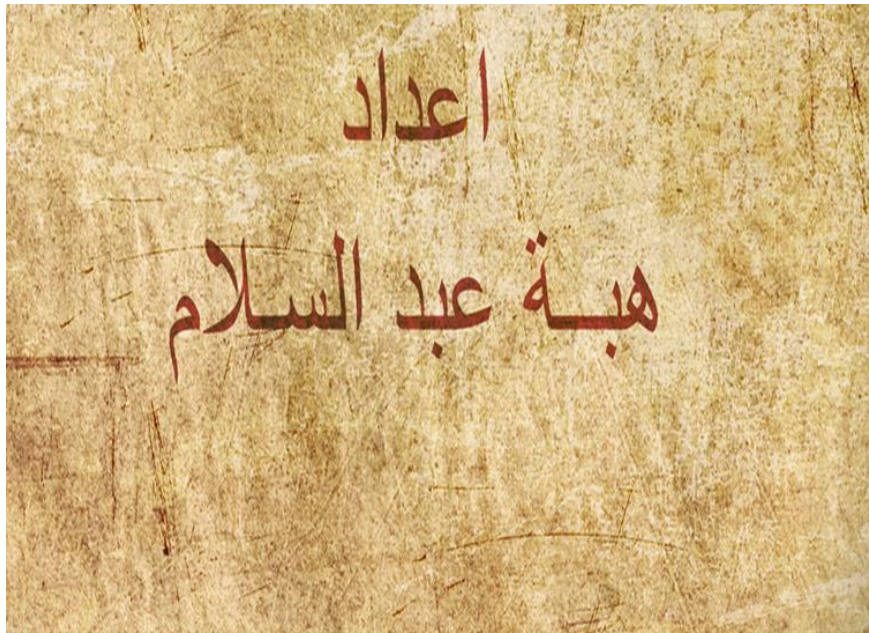 اعداد
هبـــة عبد السلام